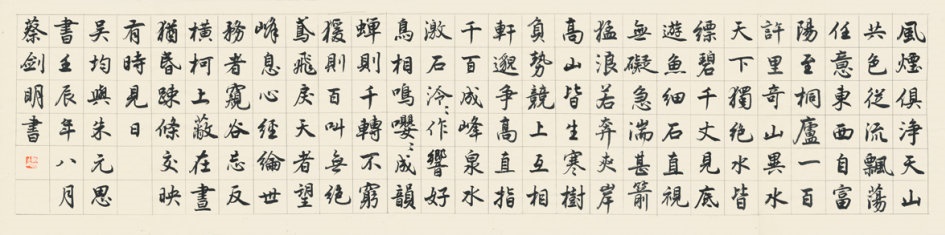 風煙俱淨天山
共色從流飄蕩
任意東西自富
陽至桐廬一百
許里奇山異水
天下獨絕水皆
縹碧千丈見底
遊魚細石直視
無礙急湍甚箭
猛浪若奔夾岸
高山皆生寒樹
負勢競上互相
軒邈爭高直指
千百成峰泉水
激石泠〻作響好
鳥相鳴嚶〻成韻
蟬則千轉不窮
猨則百叫無絕
鳶飛戾天者望
峰息心經綸世
務者窺谷忘反
橫柯上蔽在晝
猶昏疎條交映
有時見日
吳均與朱元思
書壬辰年八月
蔡劍明書